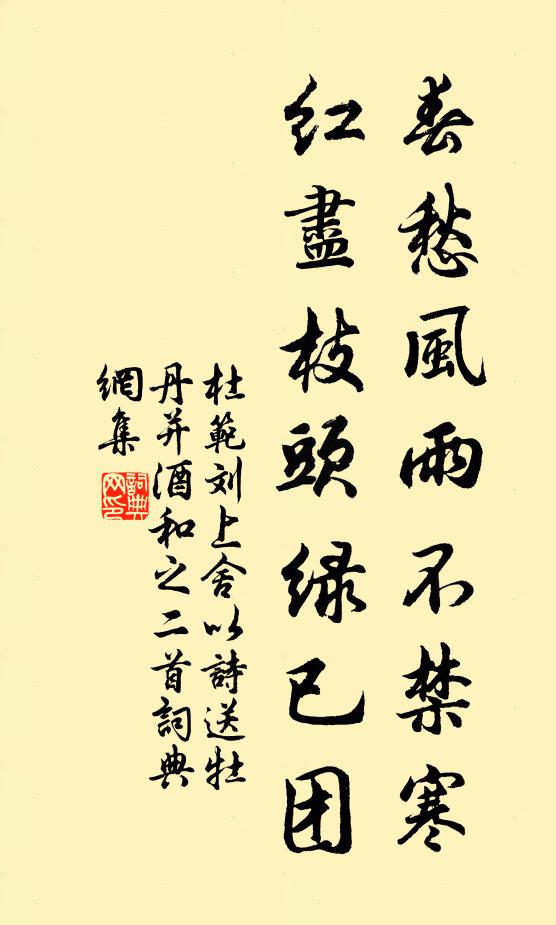 春愁風雨不禁寒
紅盡枝頭緑已团
杜範刘上舍以詩送牡
丹并酒和之二首詞典
網集
詞典
网印